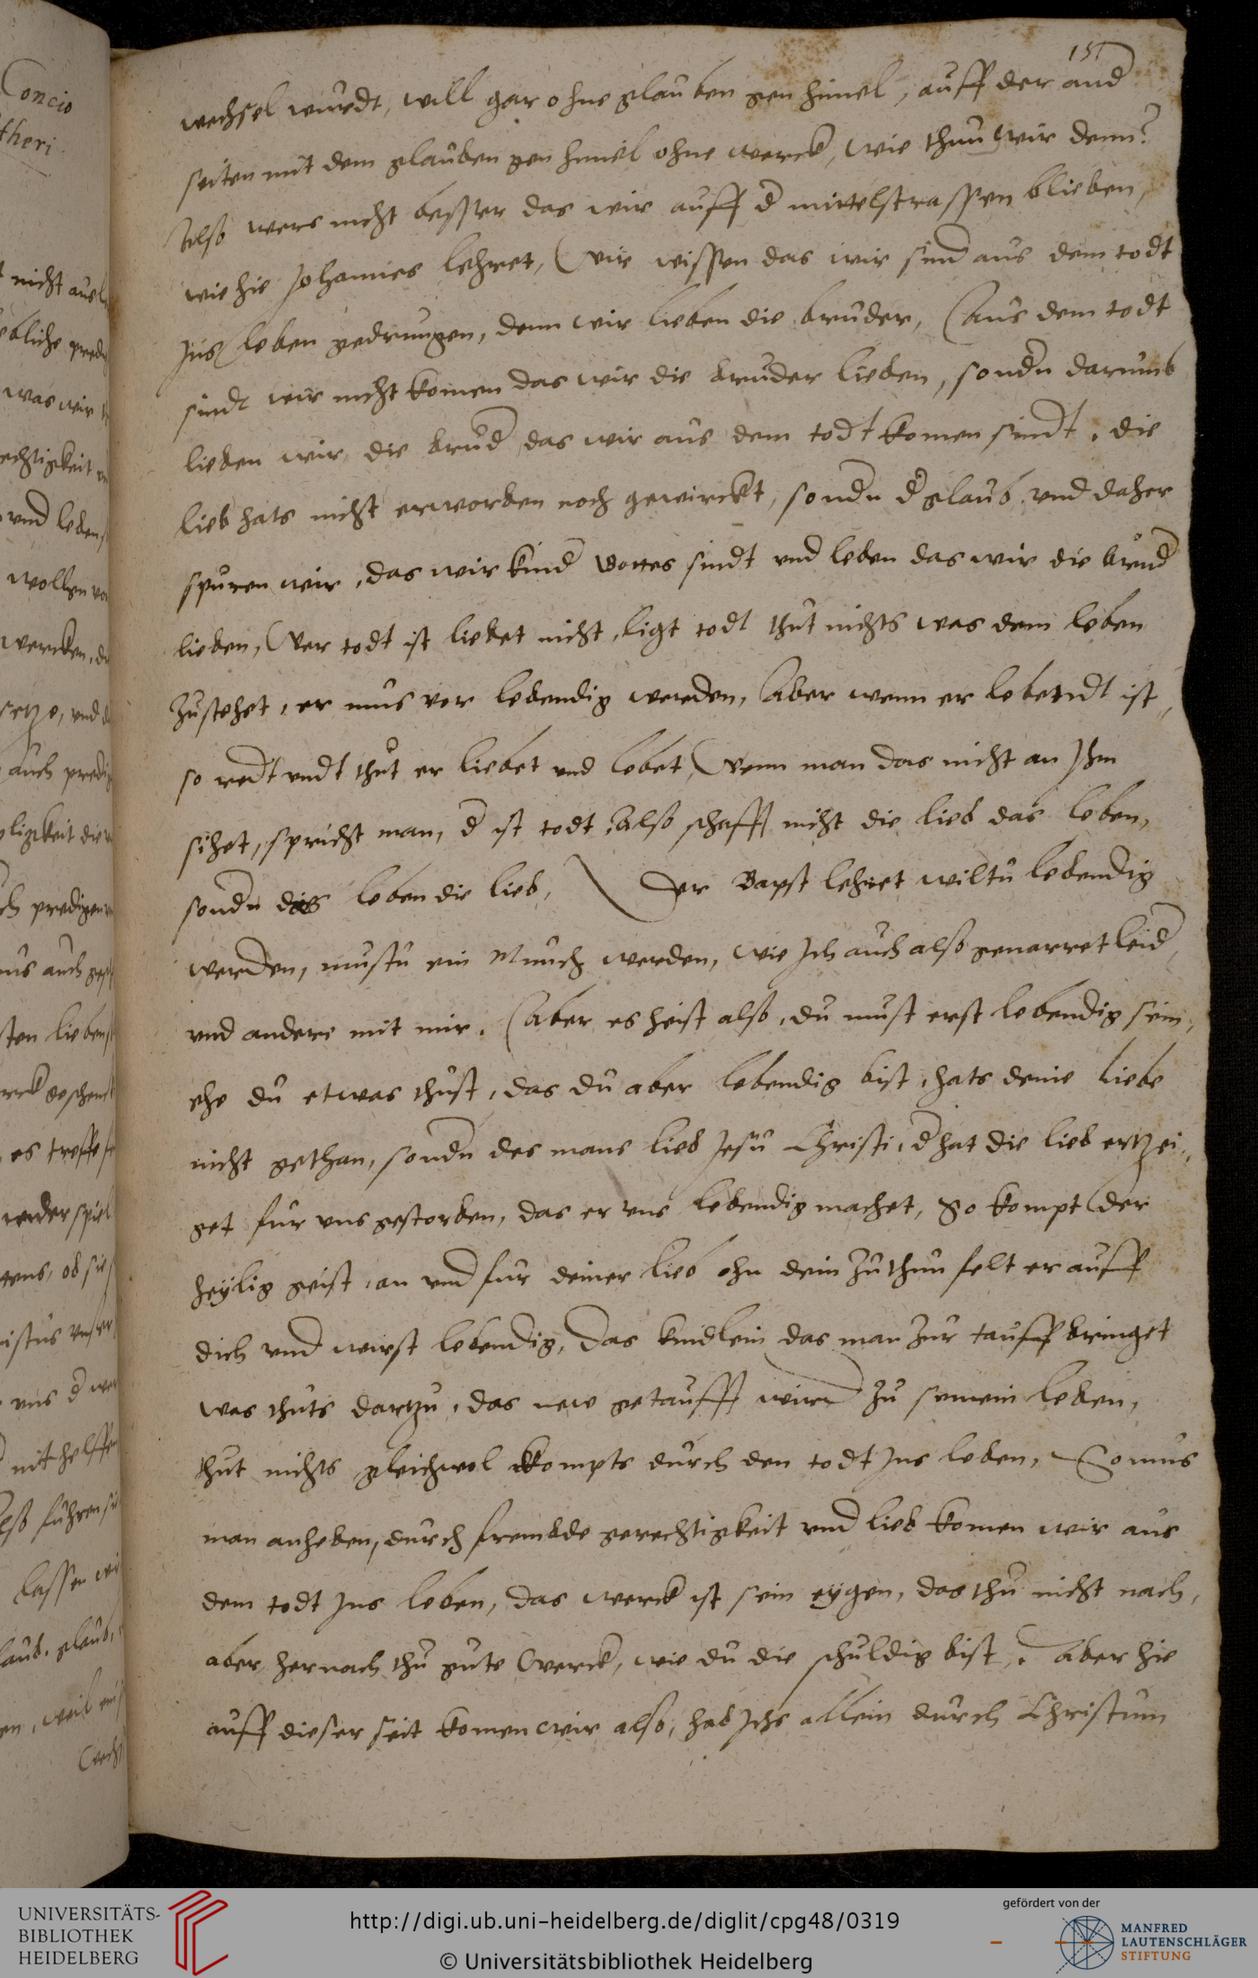 151
wechsel wurdt, will gar ohne glauben gen himel, auff der and
seiten mit dem glauben gen himel ohne werck, wie thun wir denn?
Also wers nicht besser das wir auff d mittelstrassen blieben,
wie hie Johannes lehret, Wir wissen das wir sind aus dem todt
Jns leben gedrungen, denn wir lieben die bruder, Aus dem todt
sindt wir nicht komen das wir die bruder lieben, sondn darumb
lieben wir die brud das wir aus dem todt komen sindt. die
lieb hats nicht erworben noch gewirckt, sondn d glaub, vnd daher
spuren wir, das wir kind Gottes sindt vnd leben das wir die brud
lieben, Wer todt ist liebet nicht, ligt todt thut nichts was dem leben
zustehet, er mus vor lebendig werden, Aber wenn er lebendt ist,
so redt vndt thut er liebet vnd lebet, Wenn man das nicht an Jhm
sihet, spricht man, d ist todt, Also schafft nicht die lieb das leben,
sondn das leben die lieb, Der Bapst lehret wiltu lebendig
werden, mustu ein Munch werden, wie Jch auch also genarret leid,
vnd andere mit mir. Aber es heist also, du must erst lebendig sein,
ehe du etwas thust, das du aber lebendig bist, hats deine liebe
nicht gethan, sondn des mans lieb Jesu Christi, d hat die lieb ertzei,,
get fur vns gestorben, das er vns lebendig machet, So kompt der
heylig geist, an vnd fur deiner lieb ohn dein zuthun felt er auff
dich vnd wirst lebendig, Das kindlein das man zur tauff bringet
was thuts dartzu, das new getaufft wird zu seinem leben,
thut nichts gleichwol kompts durch den todt Jns leben, So mus
man anheben, durch frembde gerechtigkeit vnd lieb komen wir aus
dem todt Jns leben, das werck ist sein eygen, das thu nicht nach,
aber hernach thu gute Werck, wie du die schuldig bist. Aber hie
auff dieser seit komen wir also, hab Jchs allein durch Christum
Concio
theri
nicht aus
was wir
vnd leben,
wollen
wercken,
vnd
auch predig
predigen
auch
lieben
es treffe
widerspiel
ob sie
vns d
mit helffen
fuhren
lassen wir
glaub,
weil
UNIVERSITÄTS-
BIBLIOTHEK
HEIDELBERG
http://digi.ub.uni-heidelberg.de/diglit/cpg48/0319
© Universitätsbibliothek Heidelberg
gefördert von der
MANFRED
LAUTENSCHLÄGER
STIFTUNG